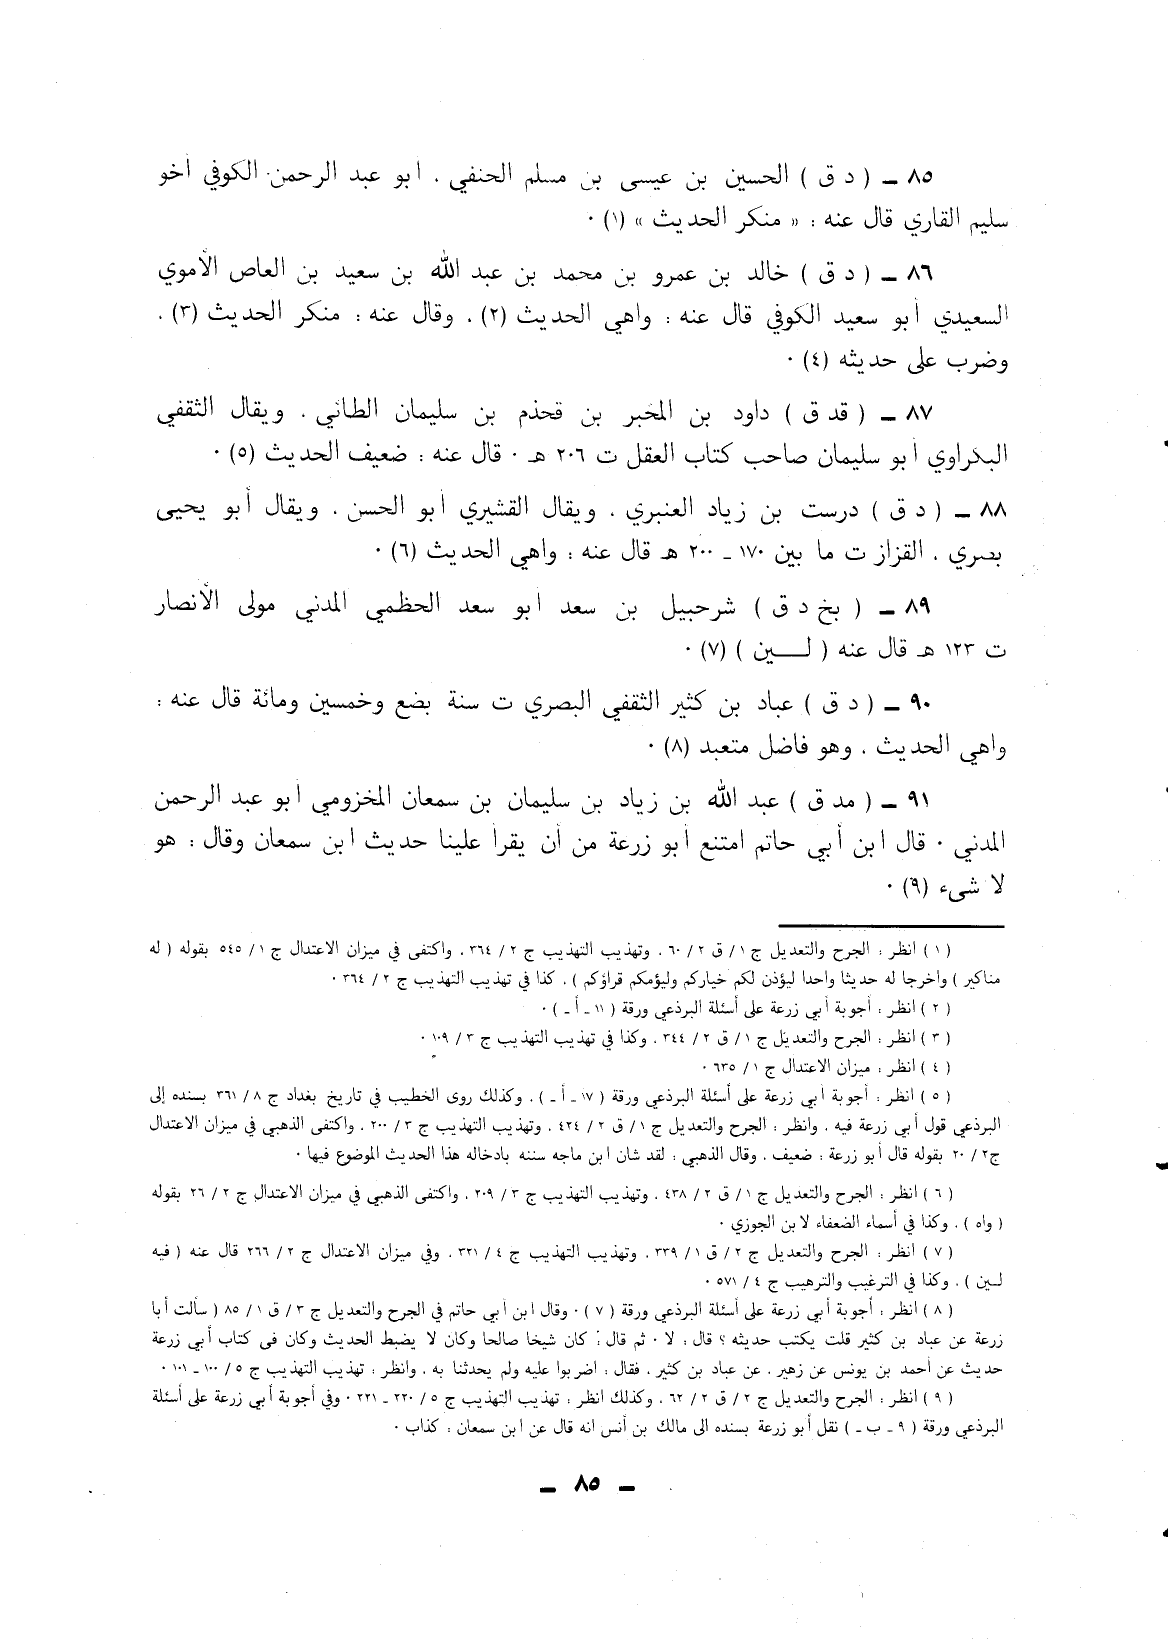 ٨٥ ـ ( د ق ) الحسين بن عيسى بن مسلم الحنفي ، أبو عبد الرحمن الكوفي أخو
سليم القاري قال عنه : « منكر الحديث » (١) ٠
٨٦ ـ ( د ق ) خالد بن عمرو بن محمد بن عبد الله بن سعيد بن العاص الأموي
السعيدي أبو سعيد الكوفي قال عنه : واهي الحديث (٢) ، وقال عنه : منكر الحديث (٣) ،
وضرب على حديثه (٤) ٠
٨٧ ـ ( قد ق ) داود بن المحبر بن قحذم بن سليمان الطائي ، ويقال الثقفي
البكراوي أبو سليمان صاحب كتاب العقل ت ٢٠٦ هـ ٠ قال عنه : ضعيف الحديث (٥) ٠
٨٨ ـ ( د ق ) درست بن زياد العنبري ، ويقال القشيري أبو الحسن ، ويقال أبو يحيى
بصري ، القزاز ت ما بين ١٧٠ ـ ٢٠٠ هـ قال عنه : واهي الحديث (٦) ٠
٨٩ ـ ( بخ د ق ) شرحبيل بن سعد أبو سعد الخطمي المدني مولى الأنصار
ت ١٢٣ هـ قال عنه ( لـــين ) (٧) ٠
٩٠ ـ ( د ق ) عباد بن كثير الثقفي البصري ت سنة بضع وخمسين ومائة قال عنه :
واهي الحديث ، وهو فاضل متعبد (٨) ٠
٩١ ـ ( مد ق ) عبد الله بن زياد بن سليمان بن سمعان المخزومي أبو عبد الرحمن
المدني ٠ قال ابن أبي حاتم امتنع أبو زرعة من أن يقرأ علينا حديث ابن سمعان وقال : هو
لا شىء (٩) ٠
( ١ ) انظر : الجرح والتعديل ج ١/ ق ٢/ ٦٠ ، وتهذيب التهذيب ج ٢/ ٣٦٤ ، واكتفى في ميزان الاعتدال ج ١/ ٥٤٥ بقوله ( له
مناكير ) واخرجا له حديثا واحدا ليؤذن لكم خياركم وليؤمكم قراؤكم ) ، كذا في تهذيب التهذيب ج ٢/ ٣٦٤ ٠
( ٢ ) انظر : أجوبة أبي زرعة على أسئلة البرذعي ورقة ( ١١ ـ أ ـ ) ٠
( ٣ ) انظر : الجرح والتعديل ج ١/ ق ٢/ ٣٤٤ ، وكذا في تهذيب التهذيب ج ٣/ ١٠٩ ٠
( ٤ ) انظر : ميزان الاعتدال ج ١/ ٦٣٥ ٠
( ٥ ) انظر : أجوبة أبي زرعة على أسئلة البرذعي ورقة ( ١٧ ـ أ ـ ) ، وكذلك روى الخطيب في تاريخ بغداد ج ٨/ ٣٦١ بسنده إلى
البرذعي قول أبي زرعة فيه ، وانظر : الجرح والتعديل ج ١/ ق ٢/ ٤٢٤ ، وتهذيب التهذيب ج ٣/ ٢٠٠ ، واكتفى الذهبي في ميزان الاعتدال
ج٢/ ٢٠ بقوله قال أبو زرعة : ضعيف ، وقال الذهبي : لقد شان ابن ماجه سننه بادخاله هذا الحديث الموضوع فيها ٠
( ٦ ) انظر : الجرح والتعديل ج ١/ ق ٢/ ٤٣٨ ، وتهذيب التهذيب ج ٣/ ٢٠٩ ، واكتفى الذهبي في ميزان الاعتدال ج ٢/ ٢٦ بقوله
( واه ) ، وكذا في أسماء الضعفاء لابن الجوزي ٠
( ٧ ) انظر : الجرح والتعديل ج ٢/ ق ١/ ٣٣٩ ، وتهذيب التهذيب ج ٤/ ٣٢١ ، وفي ميزان الاعتدال ج ٢/ ٢٦٦ قال عنه ( فيه
لـين ) ، وكذا في الترغيب والترهيب ج ٤/ ٥٧١ ٠
( ٨ ) انظر : أجوبة أبي زرعة على أسئلة البرذعي ورقة ( ٧ ) ٠ وقال ابن أبي حاتم في الجرح والتعديل ج ٣/ ق ١/ ٨٥ ( سألت أبا
زرعة عن عباد بن كثير قلت يكتب حديثه ؟ قال : لا ٠ ثم قال : كان شيخا صالحا وكان لا يضبط الحديث وكان فى كتاب أبي زرعة
حديث عن أحمد بن يونس عن زهير ، عن عباد بن كثير ، فقال : اضربوا عليه ولم يحدثنا به ، وانظر : تهذيب التهذيب ج ٥/ ١٠٠ ـ ١٠١ ٠
( ٩ ) انظر : الجرح والتعديل ج ٢/ ق ٢/ ٦٢ ، وكذلك انظر : تهذيب التهذيب ج ٥/ ٢٢٠ ـ ٢٢١ ٠ وفي أجوبة أبي زرعة على أسئلة
البرذعي ورقة ( ٩ ـ ب ـ ) نقل أبو زرعة بسنده الى مالك بن أنس انه قال عن ابن سمعان : كذاب ٠
ـ ٨٥ ـ